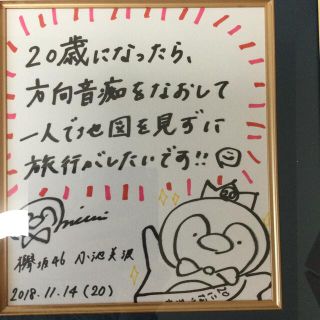 20歳になったら、
方向音痴をなおして
一人で地図を見ずに
旅行がしたいです!!
欅坂46 小池美波
2018.11.14(20)